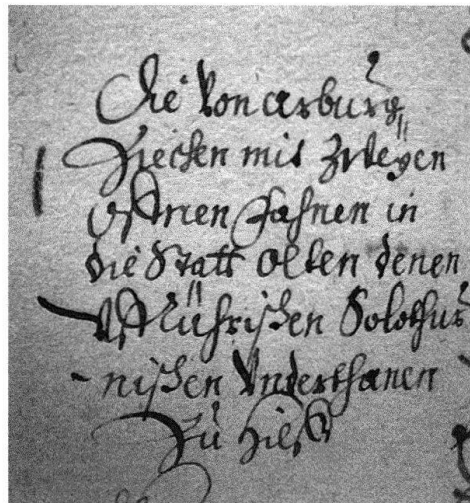 Die von arburg
Ziechen mit zweyen
offnen Fahnen in
die Statt Olten denen
Uffrührischen Solothur
- nischen Underthanen
Zu Hilff